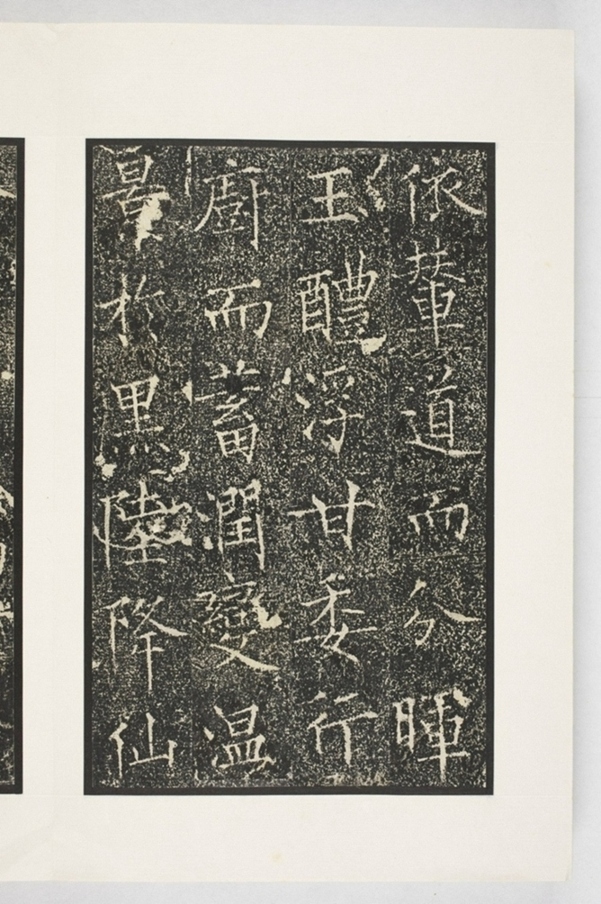 依輦道而分暉
玉醴浮甘委行
廚而蓄潤變温
於黑陸降仙